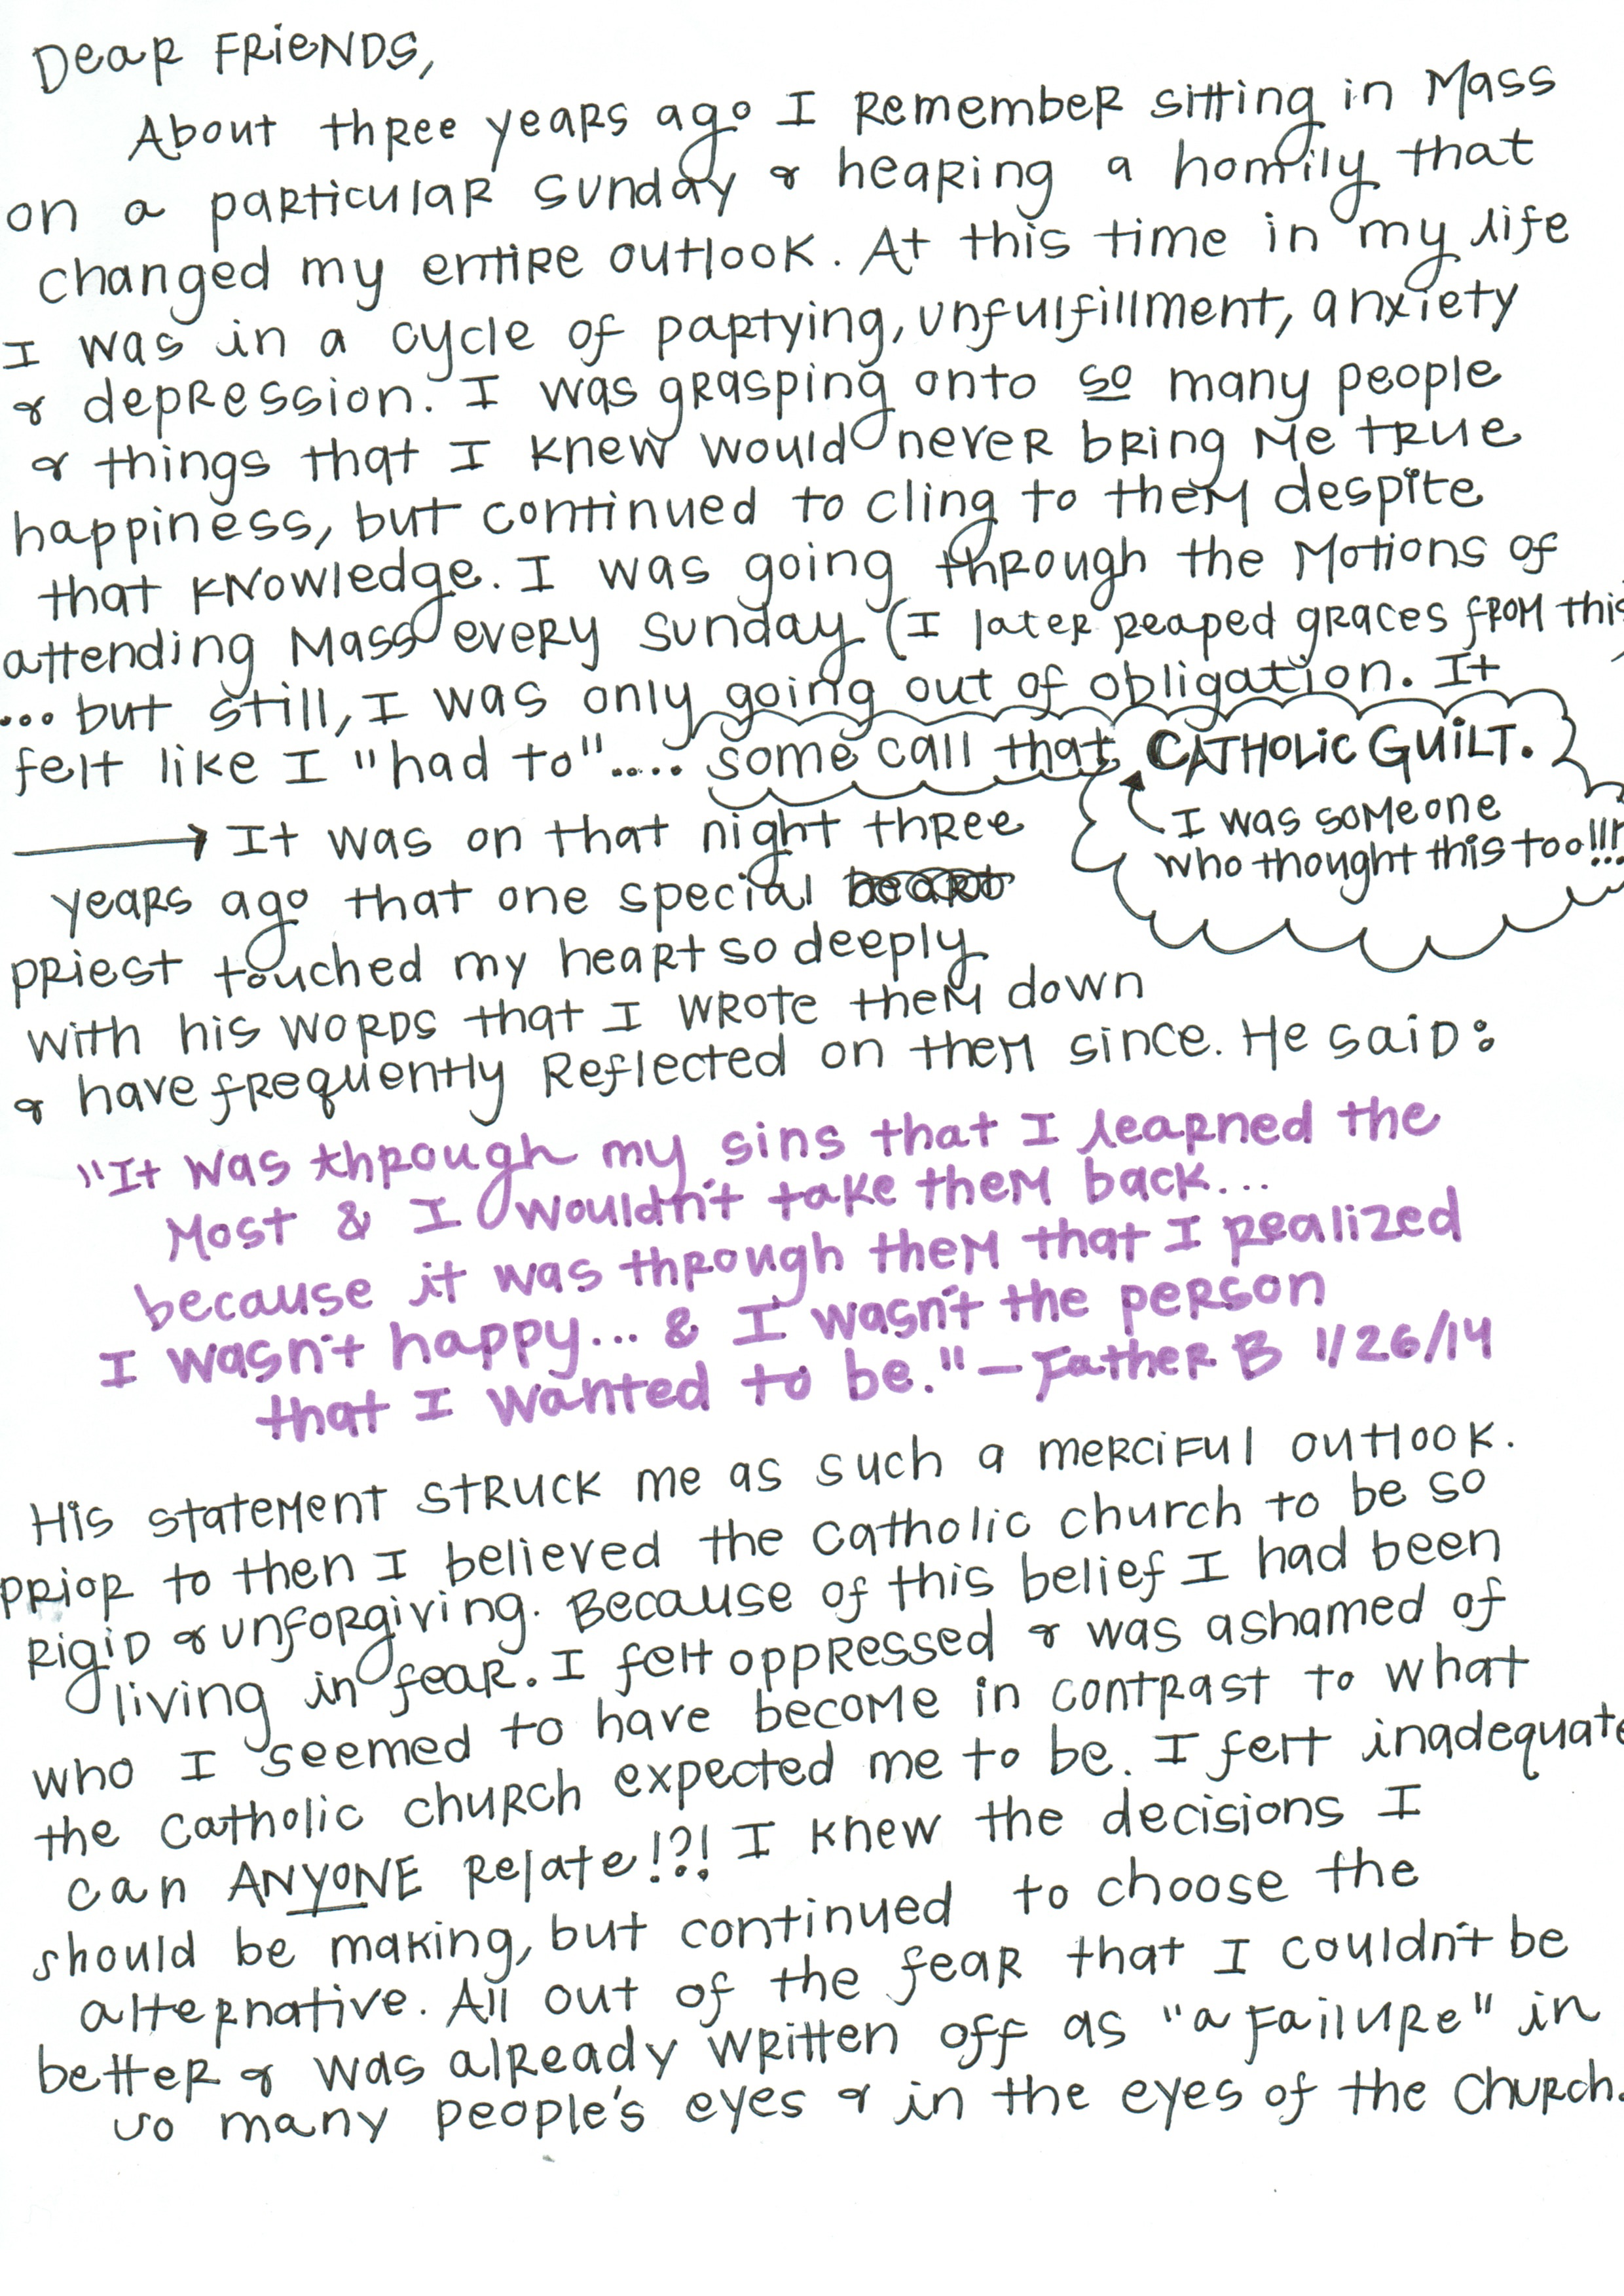 Dear Friends,
About three years ago I remember sitting in Mass
on a particular Sunday & hearing a homily that
changed my entire outlook. At this time in my life
I was in a cycle of partying, unfulfillment, anxiety
& depression. I was grasping onto so many people
& things that I knew would never bring me true
happiness, but continued to cling to them despite
that knowledge. I was going through the motions of
attending Mass every Sunday (I later reaped graces from this
... but still, I was only going out of obligation. It
felt like I "had to".... some call that CATHOLIC GUILT.
I was someone
who thought this too!!!
It was on that night three
years ago that one special
priest touched my heart so deeply
with his words that I wrote them down
& have frequently reflected on them since. He said:
"It was through my sins that I learned the
most & I wouldn't take them back...
because it was through them that I realized
I wasn't happy... & I wasn't the person
that I wanted to be." - Father B 1/26/14
His statement struck me as such a merciful outlook.
Prior to then I believed the Catholic church to be so
rigid & unforgiving. Because of this belief I had been
living in fear. I felt oppressed & was ashamed of
who I seemed to have become in contrast to what
the Catholic church expected me to be. I felt inadequate
can ANYONE relate!?! I knew the decisions I
should be making, but continued to choose the
alternative. All out of the fear that I couldn't be
better & was already written off as "a failure" in
so many people's eyes & in the eyes of the Church.